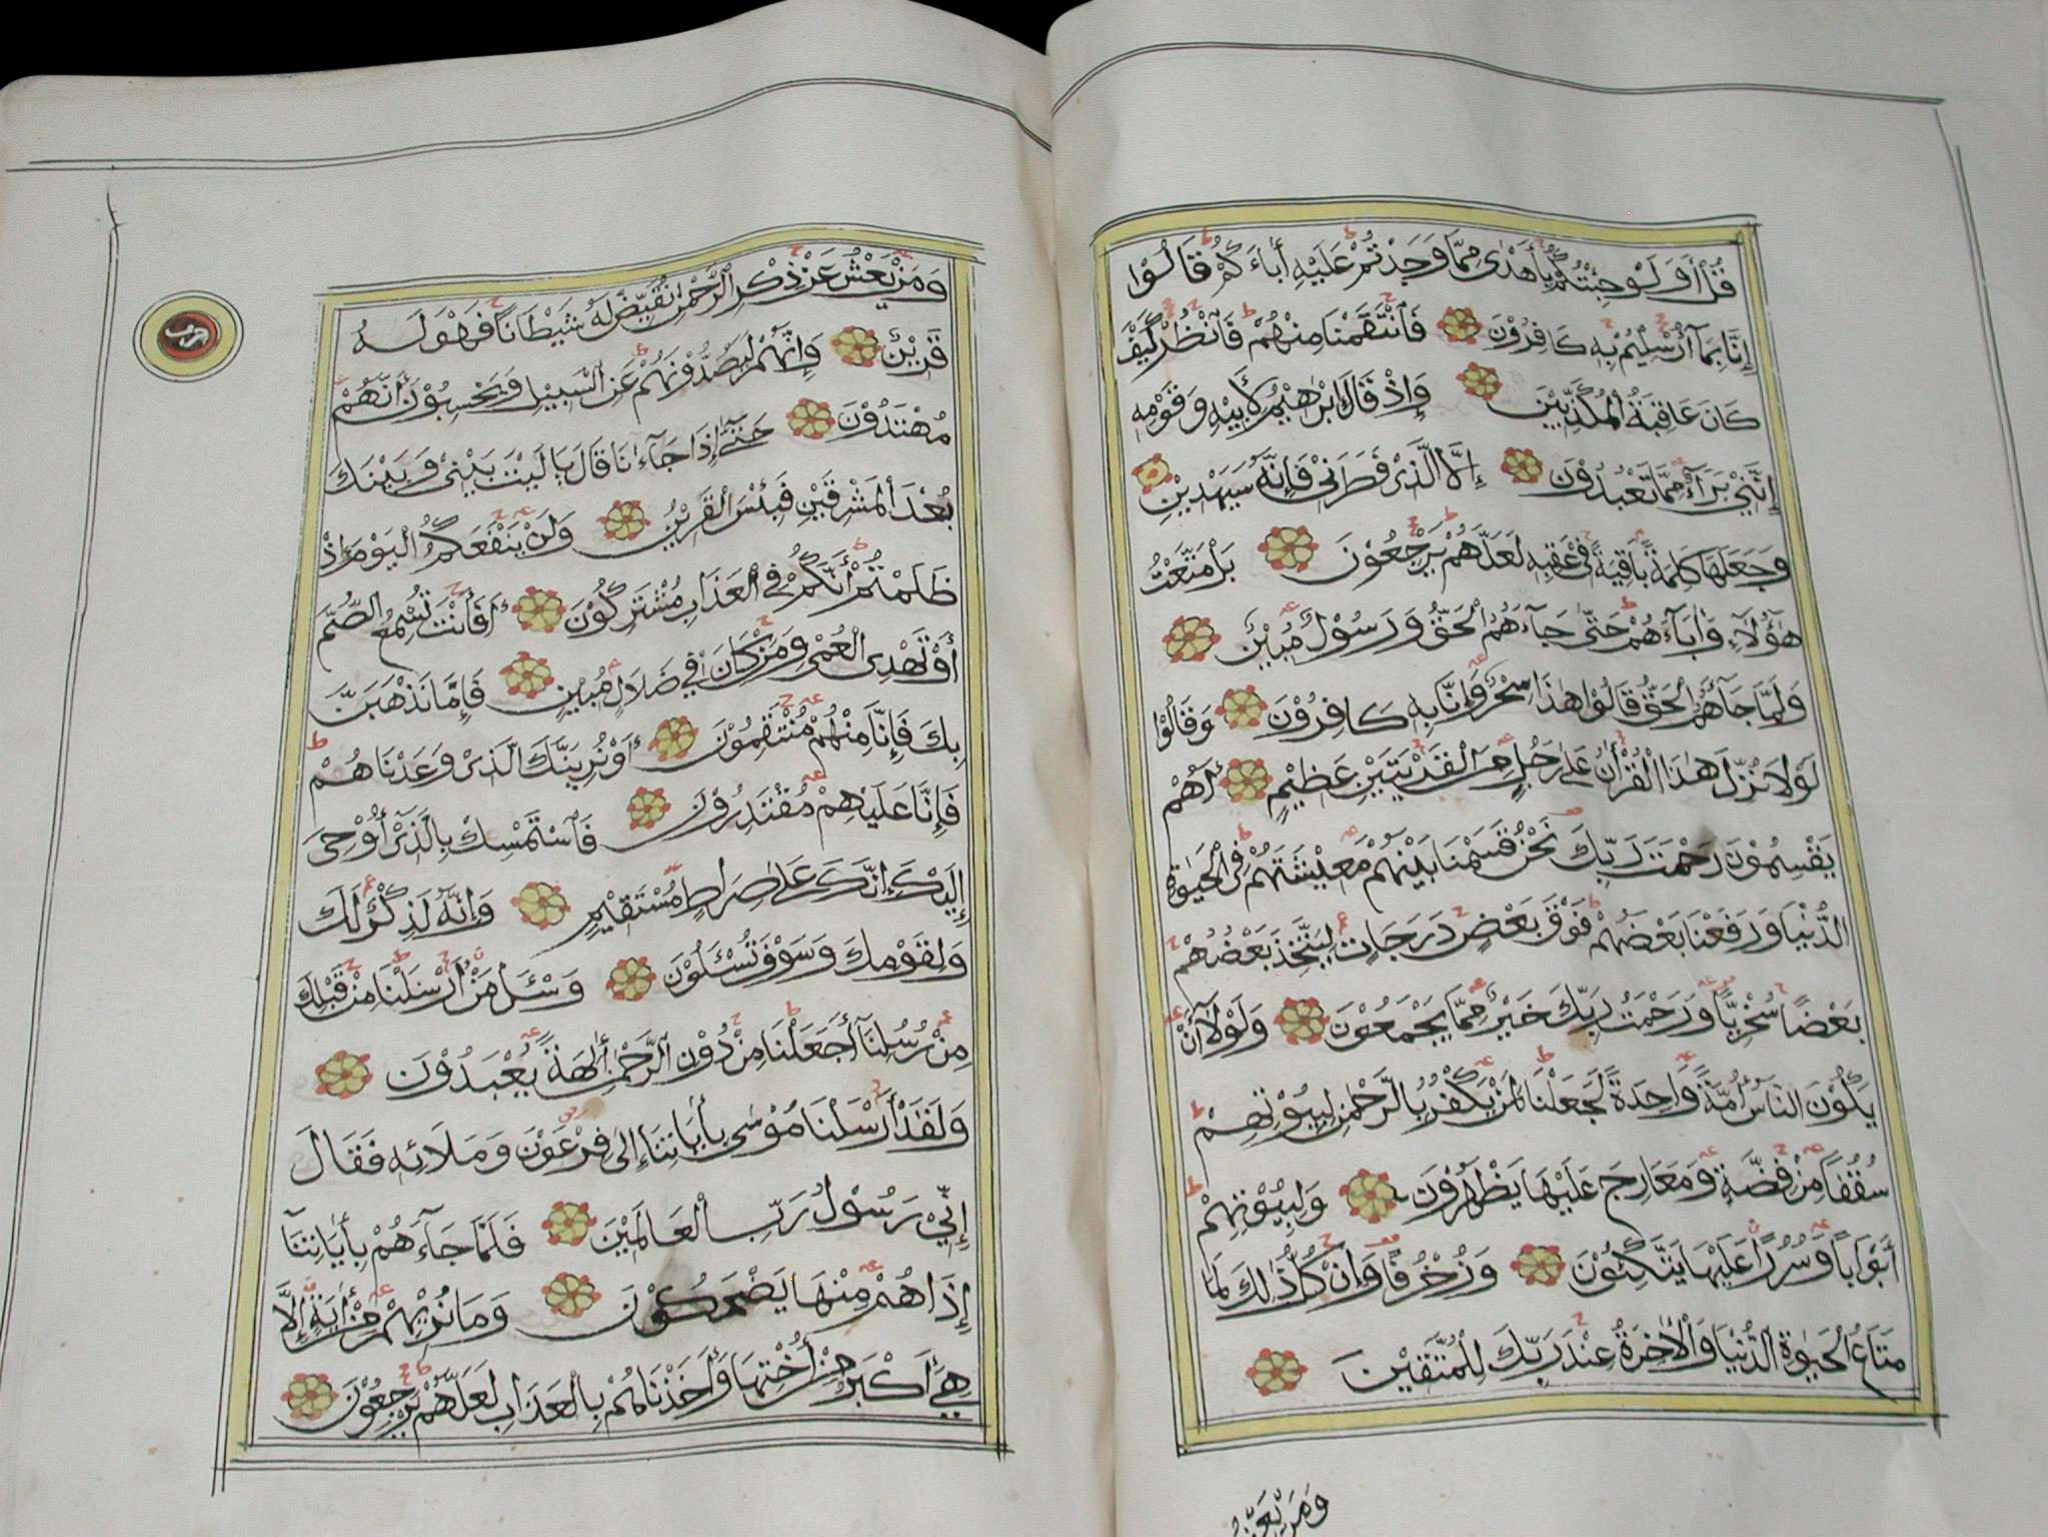 قُلْ أَوَلَوْ جِئْتُكُمْ بِأَهْدٰى مِمَّا وَجَدْتُمْ عَلَيْهِ أٰبَآءَكُمْ قَالُوْا
إِنَّا بِمَآ أُرْسِلْتُمْ بِهٖ كَافِرُوْنَ فَانْتَقَمْنَا مِنْهُمْ فَانْظُرْ كَيْفَ
كَانَ عَاقِبَةُ الْمُكَذِّبِيْنَ وَإِذْ قَالَ إِبْرٰهِيْمُ لِأَبِيْهِ وَقَوْمِهٖ
إِنَّنِيْ بَرَآءٌ مِمَّا تَعْبُدُوْنَ إِلَّا الَّذِيْ فَطَرَنِيْ فَإِنَّهٗ سَيَهْدِيْنِ
وَجَعَلَهَا كَلِمَةً بَاقِيَةً فِيْ عَقِبِهٖ لَعَلَّهُمْ يَرْجِعُوْنَ بَلْ مَتَّعْتُ
هٰٓؤُلَآءِ وَأٰبَآءَهُمْ حَتّٰى جَآءَهُمُ الْحَقُّ وَرَسُوْلٌ مُبِيْنٌ
وَلَمَّا جَآءَهُمُ الْحَقُّ قَالُوْا هٰذَا سِحْرٌ وَإِنَّا بِهٖ كَافِرُوْنَ وَقَالُوْا
لَوْلَا نُزِّلَ هٰذَا الْقُرْأٰنُ عَلٰى رَجُلٍ مِنَ الْقَرْيَتَيْنِ عَظِيْمٍ أَهُمْ
يَقْسِمُوْنَ رَحْمَتَ رَبِّكَ نَحْنُ قَسَمْنَا بَيْنَهُمْ مَعِيْشَتَهُمْ فِي الْحَيٰوةِ
الدُّنْيَا وَرَفَعْنَا بَعْضَهُمْ فَوْقَ بَعْضٍ دَرَجَاتٍ لِيَتَّخِذَ بَعْضُهُمْ
بَعْضًا سُخْرِيًّا وَرَحْمَتُ رَبِّكَ خَيْرٌ مِمَّا يَجْمَعُوْنَ وَلَوْلَآ أَنْ
يَكُوْنَ النَّاسُ أُمَّةً وَّاحِدَةً لَجَعَلْنَا لِمَنْ يَكْفُرُ بِالرَّحْمٰنِ لِبُيُوْتِهِمْ
سُقُفًا مِنْ فِضَّةٍ وَمَعَارِجَ عَلَيْهَا يَظْهَرُوْنَ وَلِبُيُوْتِهِمْ
أَبْوَابًا وَسُرُرًا عَلَيْهَا يَتَّكِئُوْنَ وَزُخْرُفًا وَإِنْ كُلُّ ذٰلِكَ لَمَّا
مَتَاعُ الْحَيٰوةِ الدُّنْيَا وَالْأٰخِرَةُ عِنْدَ رَبِّكَ لِلْمُتَّقِيْنَ
وَمَنْ يَعْشُ
وَمَنْ يَعْشُ عَنْ ذِكْرِ الرَّحْمٰنِ نُقَيِّضْ لَهٗ شَيْطَانًا فَهُوَ لَهٗ
قَرِيْنٌ وَإِنَّهُمْ لَيَصُدُّوْنَهُمْ عَنِ السَّبِيْلِ وَيَحْسَبُوْنَ أَنَّهُمْ
مُهْتَدُوْنَ حَتّٰىٓ إِذَا جَآءَنَا قَالَ يَا لَيْتَ بَيْنِيْ وَبَيْنَكَ
بُعْدَ الْمَشْرِقَيْنِ فَبِئْسَ الْقَرِيْنُ وَلَنْ يَنْفَعَكُمُ الْيَوْمَ إِذْ
ظَلَمْتُمْ أَنَّكُمْ فِي الْعَذَابِ مُشْتَرِكُوْنَ أَفَأَنْتَ تُسْمِعُ الصُّمَّ
أَوْ تَهْدِى الْعُمْيَ وَمَنْ كَانَ فِيْ ضَلَالٍ مُبِيْنٍ فَإِمَّا نَذْهَبَنَّ
بِكَ فَإِنَّا مِنْهُمْ مُنْتَقِمُوْنَ أَوْ نُرِيَنَّكَ الَّذِيْ وَعَدْنَاهُمْ
فَإِنَّا عَلَيْهِمْ مُقْتَدِرُوْنَ فَاسْتَمْسِكْ بِالَّذِيْ أُوْحِيَ
إِلَيْكَ إِنَّكَ عَلٰى صِرَاطٍ مُسْتَقِيْمٍ وَإِنَّهٗ لَذِكْرٌ لَكَ
وَلِقَوْمِكَ وَسَوْفَ تُسْئَلُوْنَ وَسْئَلْ مَنْ أَرْسَلْنَا مِنْ قَبْلِكَ
مِنْ رُسُلِنَآ أَجَعَلْنَا مِنْ دُوْنِ الرَّحْمٰنِ أٰلِهَةً يُعْبَدُوْنَ
وَلَقَدْ أَرْسَلْنَا مُوْسٰى بِأٰيَاتِنَآ إِلٰى فِرْعَوْنَ وَمَلَائِهٖ فَقَالَ
إِنِّيْ رَسُوْلُ رَبِّ الْعَالَمِيْنَ فَلَمَّا جَآءَهُمْ بِأٰيَاتِنَآ
إِذَا هُمْ مِنْهَا يَضْحَكُوْنَ وَمَا نُرِيْهِمْ مِنْ أٰيَةٍ إِلَّا
هِيَ أَكْبَرُ مِنْ أُخْتِهَا وَأَخَذْنَاهُمْ بِالْعَذَابِ لَعَلَّهُمْ يَرْجِعُوْنَ